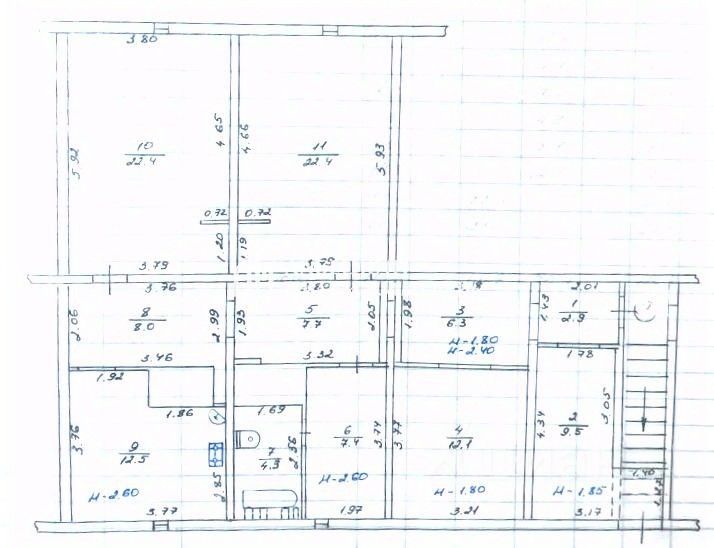 3.80
10
22.4
5.92
4.65
4.66
11
22.4
5.93
0.72 0.72
1.20
1.19
3.79
3.75
3.76
3.80
2.01
2.06
8
8.0
2.99
1.93
5
7.7
2.05
1.98
3
6.3
1.43
1
2.9
н-1.80
н-2.40
3.46
3.32
1.78
1.92
1.86
1.69
3.76
9
12.5
2.85
7
4.3
2.56
6
7.4
3.74
3.77
4
12.1
4.34
2
9.5
3.05
н-2.60
н-2.60
н-1.80
н-1.85
1.40
3.77
1.97
3.21
3.17